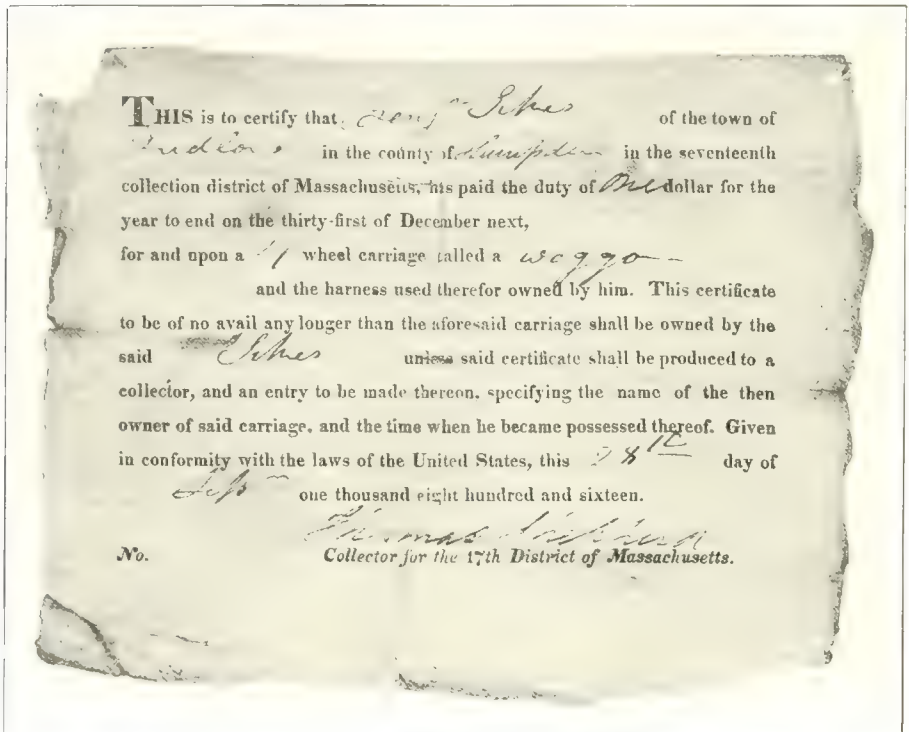 THIS is to certify that Benjn Sikes of the town of
Ludlow in the county of Hampden in the seventeenth
collection district of Massachusetts, has paid the duty of One dollar for the
year to end on the thirty-first of December next,
for and upon a 4 wheel carriage called a waggon
and the harness used therefor owned by him. This certificate
to be of no avail any longer than the aforesaid carriage shall be owned by the
said Sikes unless said certificate shall be produced to a
collector, and an entry to be made thereon, specifying the name of the then
owner of said carriage, and the time when he became possessed thereof. Given
in conformity with the laws of the United States, this 28th day of
one thousand eight hundred and sixteen.
Thomas
No. Collector for the 17th District of Massachusetts.